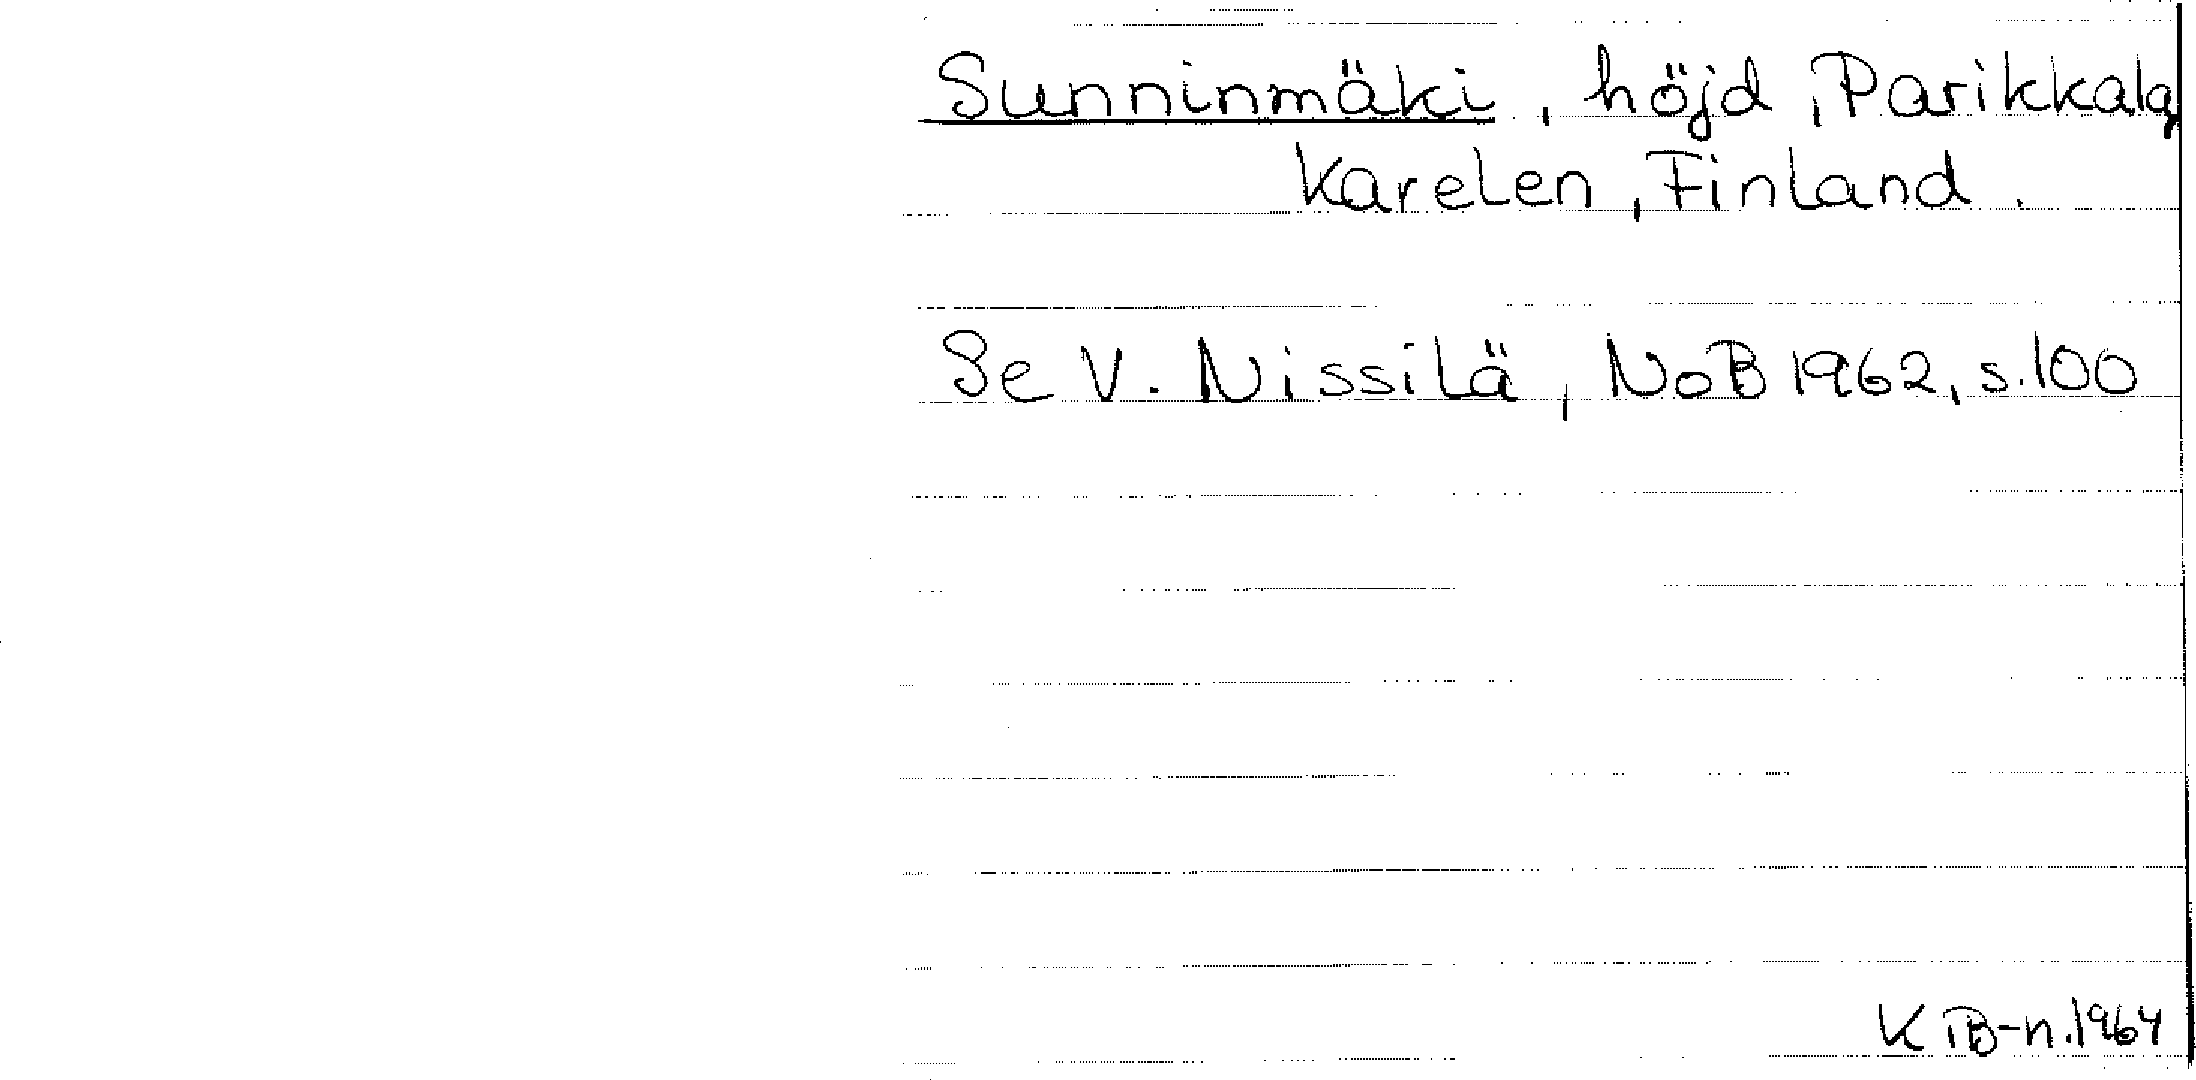 Sunninmäki, höjd, Parikkala,
Karelen, Finland.
Se V. Nissilä, NoB 1962, s. 100
K B-n. 1964